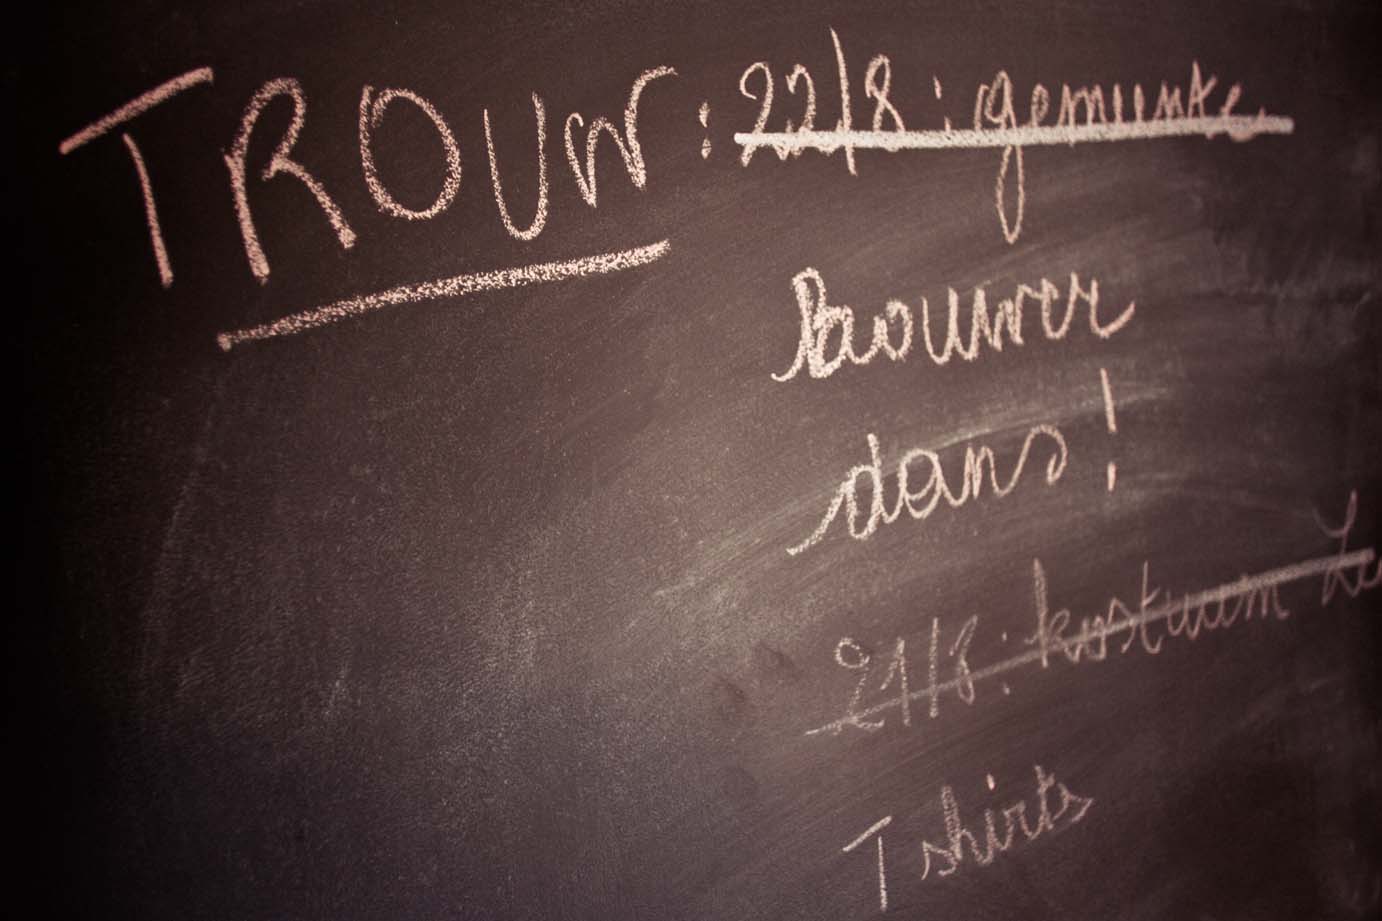 TROUW : 22/8 : gemeente
dans!
21/8 : kostuum
Tshirts